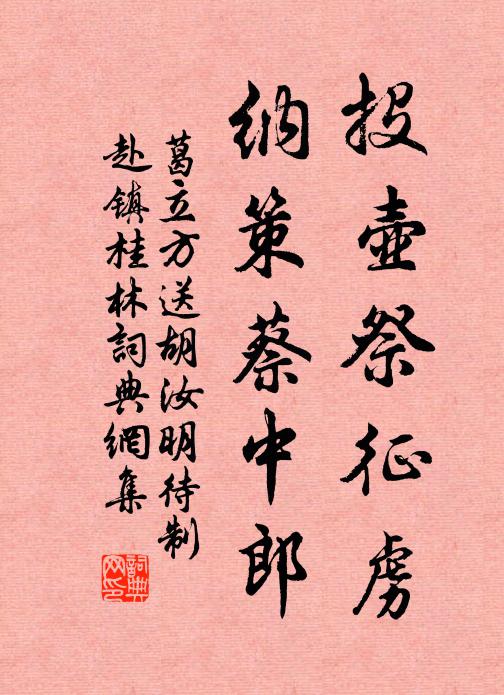 投壺祭征虜
納策蔡中郎
葛立方送胡汝明待制
赴鎮桂林詞典網集
詞典
网印